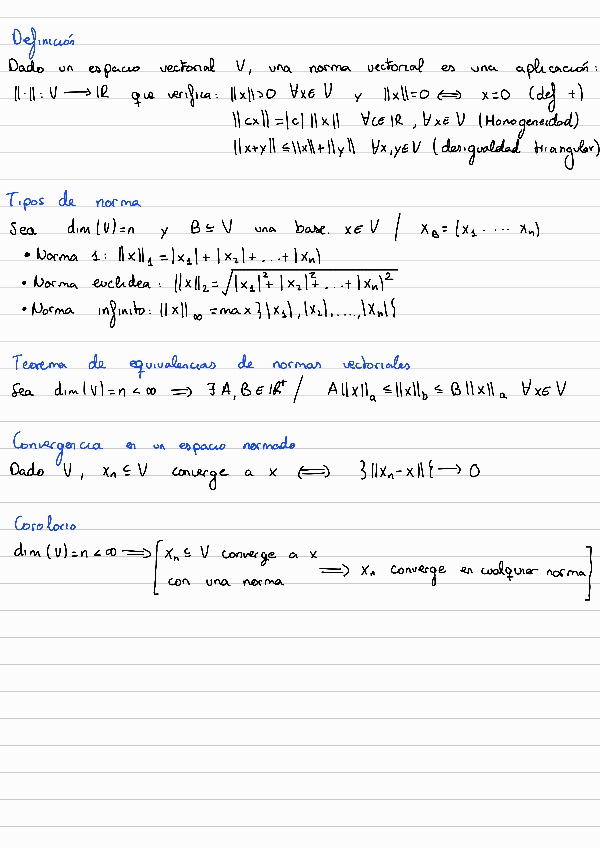 Definición
Dado un espacio vectorial V, una norma vectorial es una aplicación:
||·||: V → ℝ que verifica: ||x||>0 ∀x∈V y ||x||=0 ⇔ x=0 (def +)
||cx||=|c| ||x|| ∀c∈ℝ, ∀x∈V (Homogeneidad)
||x+y|| ≤ ||x||+||y|| ∀x,y∈V (desigualdad triangular)
Tipos de norma
Sea dim(V)=n y B⊆V una base. x∈V / x_B=(x₁ ··· xₙ)
• Norma 1: ||x||₁ = |x₁|+|x₂|+...+|xₙ|
• Norma euclídea: ||x||₂ = √(|x₁|²+|x₂|²+...+|xₙ|²)
• Norma infinito: ||x||∞ = max}|x₁|,|x₂|,...,|xₙ|{
Teorema de equivalencias de normas vectoriales
Sea dim(V)=n<∞ ⇒ ∃A,B∈ℝ⁺ / A||x||ₐ ≤ ||x||_b ≤ B||x||ₐ ∀x∈V
Convergencia en un espacio normado
Dado V, xₙ⊆V converge a x ⇔ }||xₙ-x||{ → 0
Corolario
dim(V)=n<∞ ⇒ [xₙ⊆V converge a x
con una norma ⇒ xₙ converge en cualquier norma]